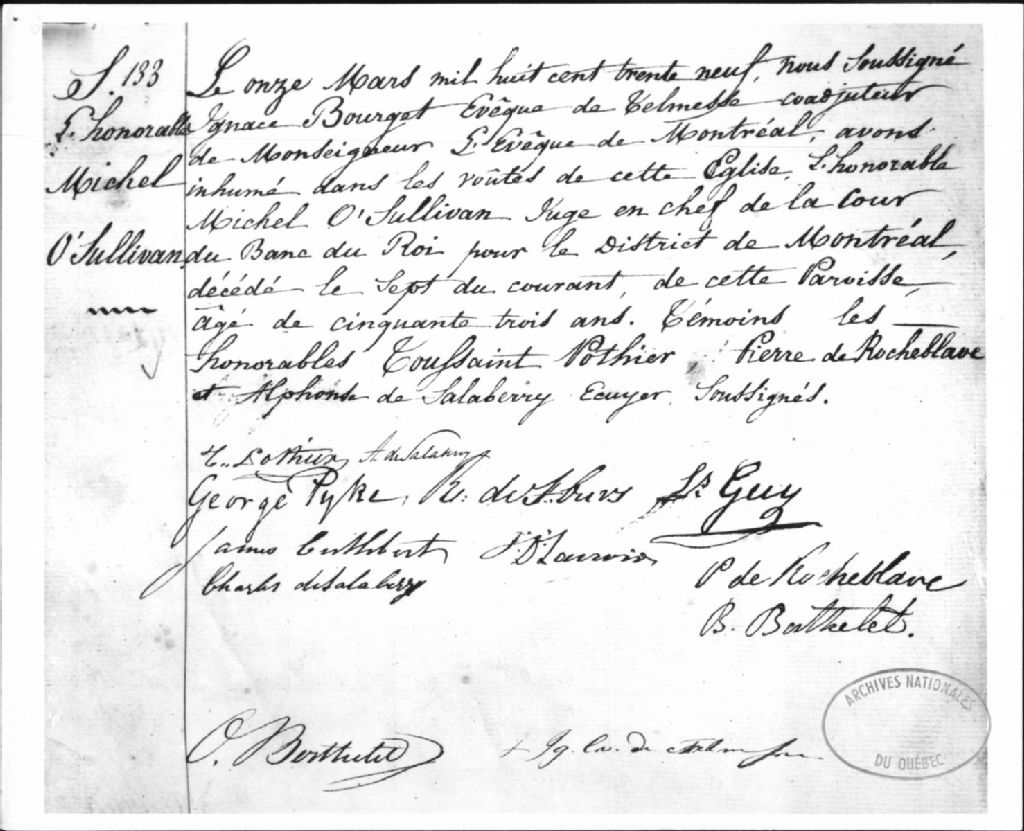 S. 133
L'honorable
Michel
O'Sullivan
Le onze Mars mil huit cent trente neuf, nous soussigné
Ignace Bourget Evêque de Telmesse coadjuteur
de Monseigneur L'Evêque de Montréal, avons
inhumé dans les voûtes de cette Eglise, L'honorable
Michel O'Sullivan Juge en chef de la Cour
du Banc du Roi pour le District de Montréal,
décédé le sept du courant, de cette Paroisse,
âgé de cinquante trois ans. Témoins les
honorables Toussaint Pothier Pierre de Rocheblave
et Alphonse de Salaberry Ecuyer Soussignés.
T. Pothier A de Salaberry
George Pyke, Ls Guy
James Cuthbert
Charles de Salaberry
P de Rocheblave
B. Berthelet.
O. Berthelet
+ Ig. Ev. de Telmesse
ARCHIVES NATIONALES
DU QUÉBEC